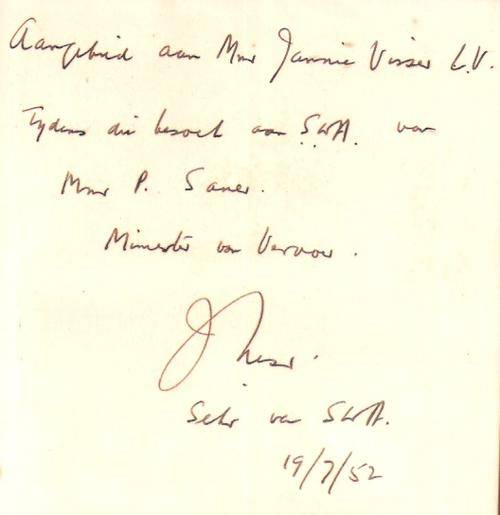 Aangebied aan Mnr Jannie Visser L.V.
Tydens die besoek aan S.W.A. van
Mnr P. Sauer.
Minister van Vervoer.
J
Sekr van SWA.
19/7/52